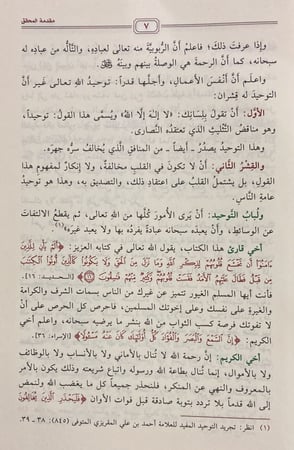 مقدمة المحقق
٧
وإذا عرفتَ ذلك؛ فاعلم أنَّ الرُّبوبيَّة منه تعالى لعباده، والتَّأله من عباده له
سبحانه، كما أنَّ الرحمة هي الوصلة بينهم وبينه ﷺ.
واعلم أنَّ أنفَسَ الأعمال، وأجلَّها قدراً: توحيدُ الله تعالى غير أن
التوحيد له قِشران:
الأوَّل: أنْ تقولَ بلسَانِك: «لا إله إلَّا الله» ويُسمَّى هذا القولُ: توحيداً،
وهو مناقضُ التَّثليثِ الذي تعتقدُه النَّصارى.
وهذا التوحيد يصدُرُ ـ أيضاً ـ من المنافق الَّذي يُخالفُ سرُّه جهرَه.
والقِشْرُ الثَّاني: أنْ لا تكونَ في القلبِ مخالفَةٌ، ولا إنكارٌ لمفهوم هذا
القولِ، بل يشتملُ القلبُ على اعتقادِ ذلك، والتصديق به، وهذا هو توحيدُ
عامةِ النَّاسِ.
ولُبابُ التَّوحيد: أنْ يرَى الأمورَ كُلَّها من الله تعالى، ثم يقطعُ الالتفاتَ
عن الوسائطِ، وأنْ يعبدَه سبحانه عبادةً يفرده بها ولا يعبدَ غيرَه»(١).
أخي قارئَ هذا الكتاب، يقول الله تعالى في كتابه العزيز: ﴿أَلَمْ يَأْنِ لِلَّذِينَ
آمَنُوا أَن تَخْشَعَ قُلُوبُهُمْ لِذِكْرِ اللَّهِ وَمَا نَزَلَ مِنَ الْحَقِّ وَلَا يَكُونُوا كَالَّذِينَ أُوتُوا الْكِتَابَ
مِن قَبْلُ فَطَالَ عَلَيْهِمُ الْأَمَدُ فَقَسَتْ قُلُوبُهُمْ وَكَثِيرٌ مِّنْهُمْ فَاسِقُونَ ﴿١٦﴾﴾ [الحديد: ١٦].
فأنت أيها المسلم الغيور تتميز عن غيرك من الناس بسمات الشرف والكرامة
والغيرة على نفسك وعلى إخوتك المسلمين، فاحرص كل الحرص على أنْ
لا تفوتك فرصة كسب الثواب من الله بنشر ما يرضيه سبحانه، واعلم أخي
الكريم: ﴿إِنَّ السَّمْعَ وَالْبَصَرَ وَالْفُؤَادَ كُلُّ أُولَٰئِكَ كَانَ عَنْهُ مَسْئُولًا﴾ [الإسراء: ٣٦].
أخي الكريم: إنَّ رحمة الله لا تُنال بالأماني ولا بالأنساب ولا بالوظائف
ولا بالأموال، إنما تُنال بطاعة الله ورسوله واتباع شريعته وذلك يكون بالأمر
بالمعروف والنهي عن المنكر، فلنحذر جميعاً كل ما يغضب الله ولنقدم
إلى الله قدماً بلا تردد بتوبة صادقة قبل فوات الأوان ﴿فَلْيَحْذَرِ الَّذِينَ يُخَالِفُونَ
(١) انظر: تجريد التوحيد المفيد للعلامة أحمد بن علي المقريزي المتوفى (٨٤٥): ٣٨ ـ ٣٩.